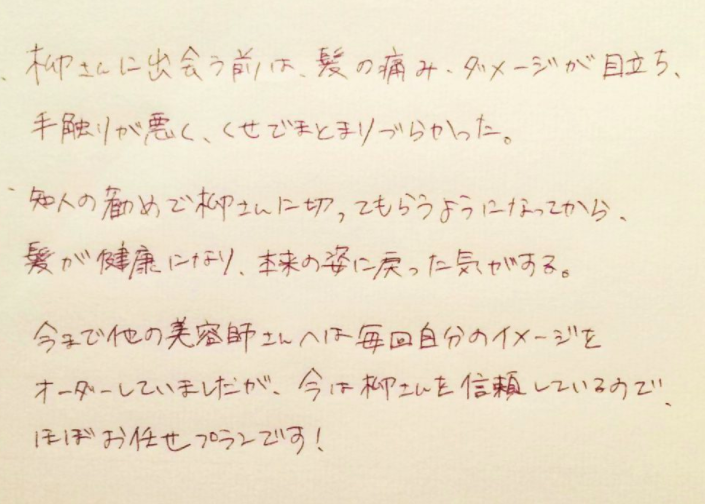 柳さんに出会う前は、髪の痛み・ダメージが目立ち、
手触りが悪く、くせでまとまりづらかった。
知人の勧めで柳さんに切ってもらうようになってから、
髪が健康になり、本来の姿に戻った気がする。
今まで他の美容師さんへは毎回自分のイメージを
オーダーしていましたが、今は柳さんを信頼しているので、
ほぼお任せプランです!